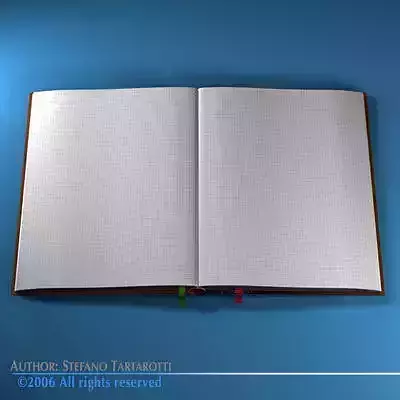 Author: Stefano Tartarotti
©2006 All rights reserved